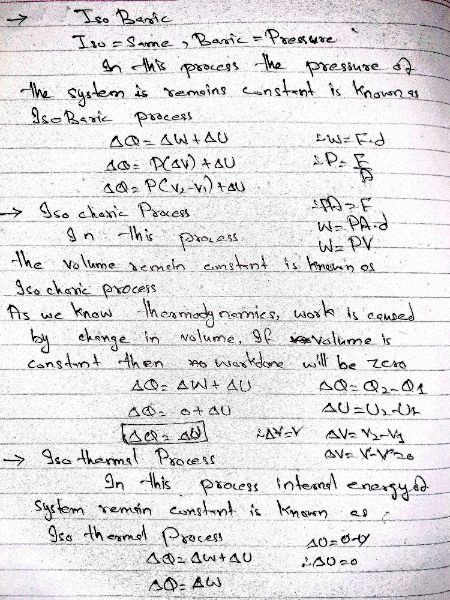 → Iso Baric
Iso = Same , Baric = Pressure
In this process the pressure of
the system is remains constant is known as
IsoBaric process
ΔQ = ΔW + ΔU ∴W = F.d
ΔQ = P(ΔV) + ΔU ∴P = F/A
ΔQ = P(V₂-V₁) + ΔU
∴PA = F
→ Iso choric Process
W = PA.d
In this process
W = PV
the volume remein constant is known as
Iso choric process
As we know thermodynamics, work is caused
by change in volume. If volume is
constant then no workdone will be zero
ΔQ = ΔW + ΔU ΔQ = Q₂-Q₁
ΔQ = 0 + ΔU ΔU = U₂-U₁
ΔQ = ΔU ∴ΔV=V ΔV = V₂-V₁
ΔV = V-V=0
→ Iso thermal Process
In this process internal energy of
System remain constant is known as
Iso thermal Process ΔU = U-U
ΔQ = ΔW + ΔU ∴ΔU = 0
ΔQ = ΔW